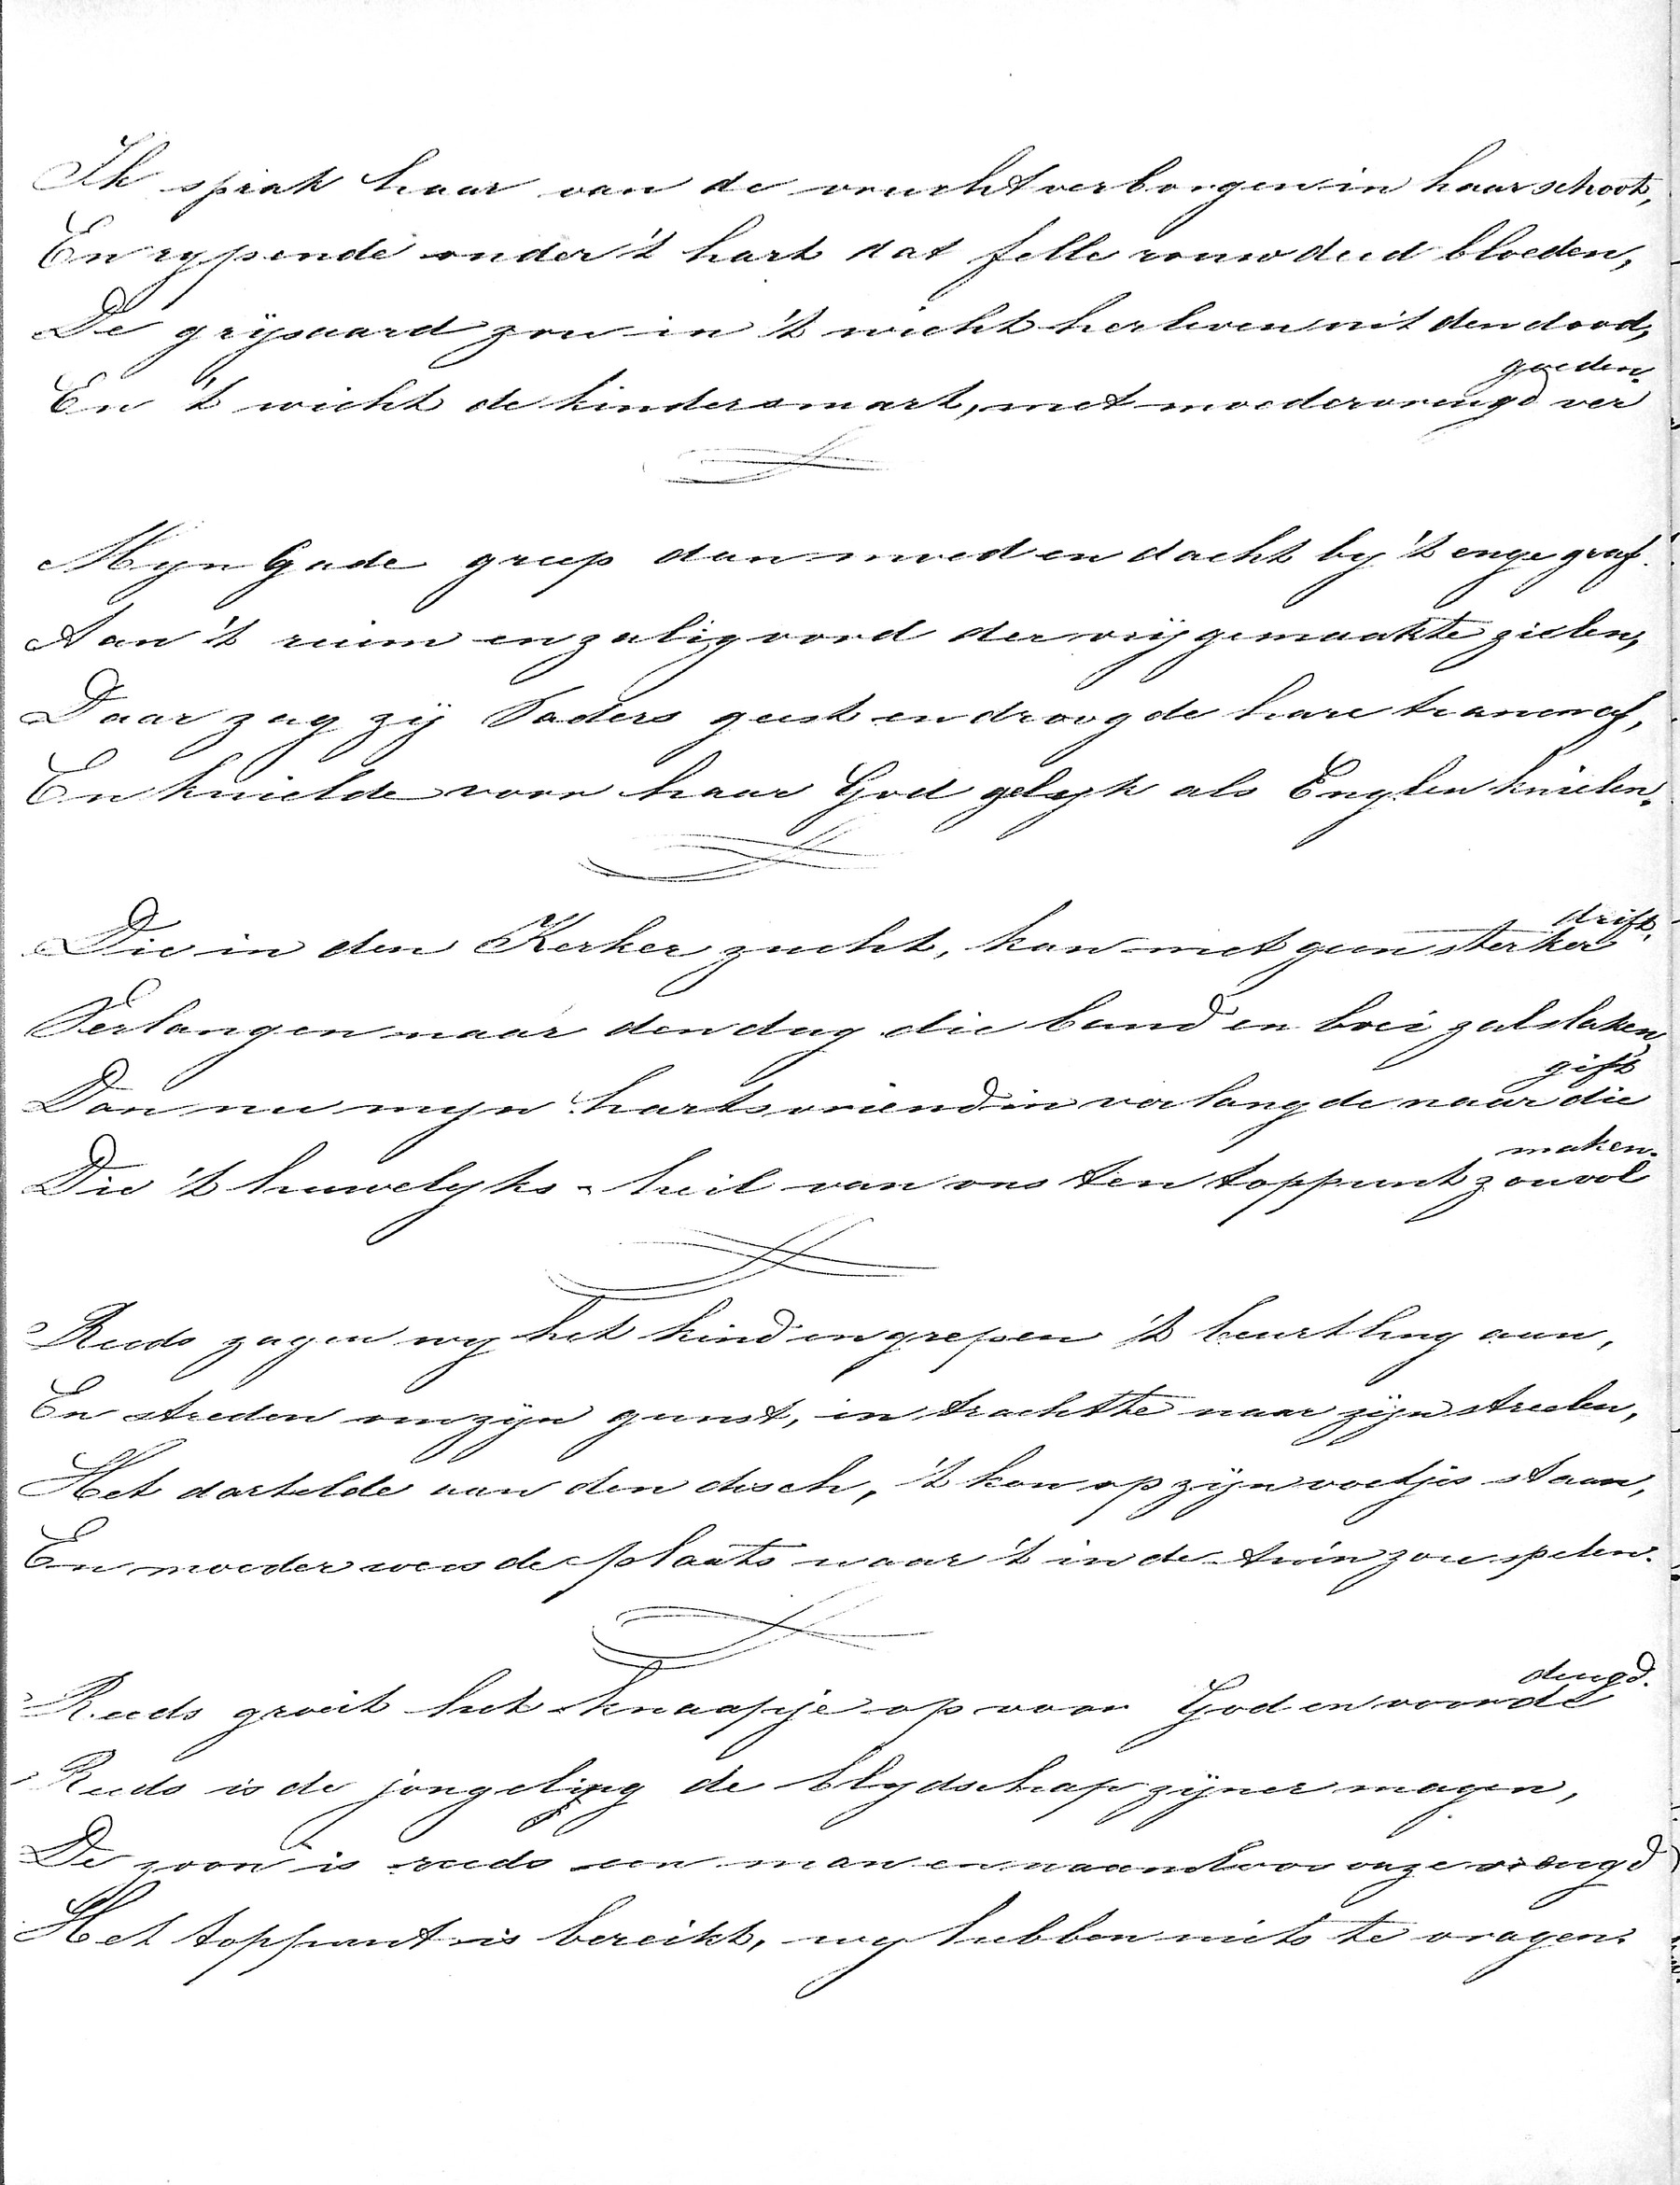 Ik sprak haar van de vrucht verborgen in haar schoot,
En rypende onder 't hart dat felle rouw deed bloeden,
De grijsaard zou in 't wicht herleven uit den dood,
En 't wicht de kindersmart, met moedervreugd ver
goeden.
Myn Gade greep dan moed en dacht by 't enge graf.
Aan 't ruim en zalig oord der vrijgemaakte zielen,
Daar zag zij Vaders geest en droogde hare tranen af,
En knielde voor haar God gelyk als Englen knielen.
Die in den Kerker zucht, kan met geen sterker
drift,
Verlangen naar den dag die band en boei zal slaken,
Dan nu myn hartsvriendin verlangde naar die
gift
Die 't huwelyks-heil van ons ten toppunt zou vol
maken.
Reeds zagen wy het kind en grepen 't beurtling aan,
En streden om zijn gunst, en trachtte naar zijn streelen,
Het dartelde aan den disch, 't kon op zijn voetjes staan,
En moeder wees de plaats waar 't in de tuin zou spelen.
Reeds groeit het knaapje op voor God en voor de
deugd.
Reeds is de jongeling de blydschap zijner magen,
De zoon is reeds een man en onze vreugd
Het toppunt is bereikt, wy hebben niets te vragen.